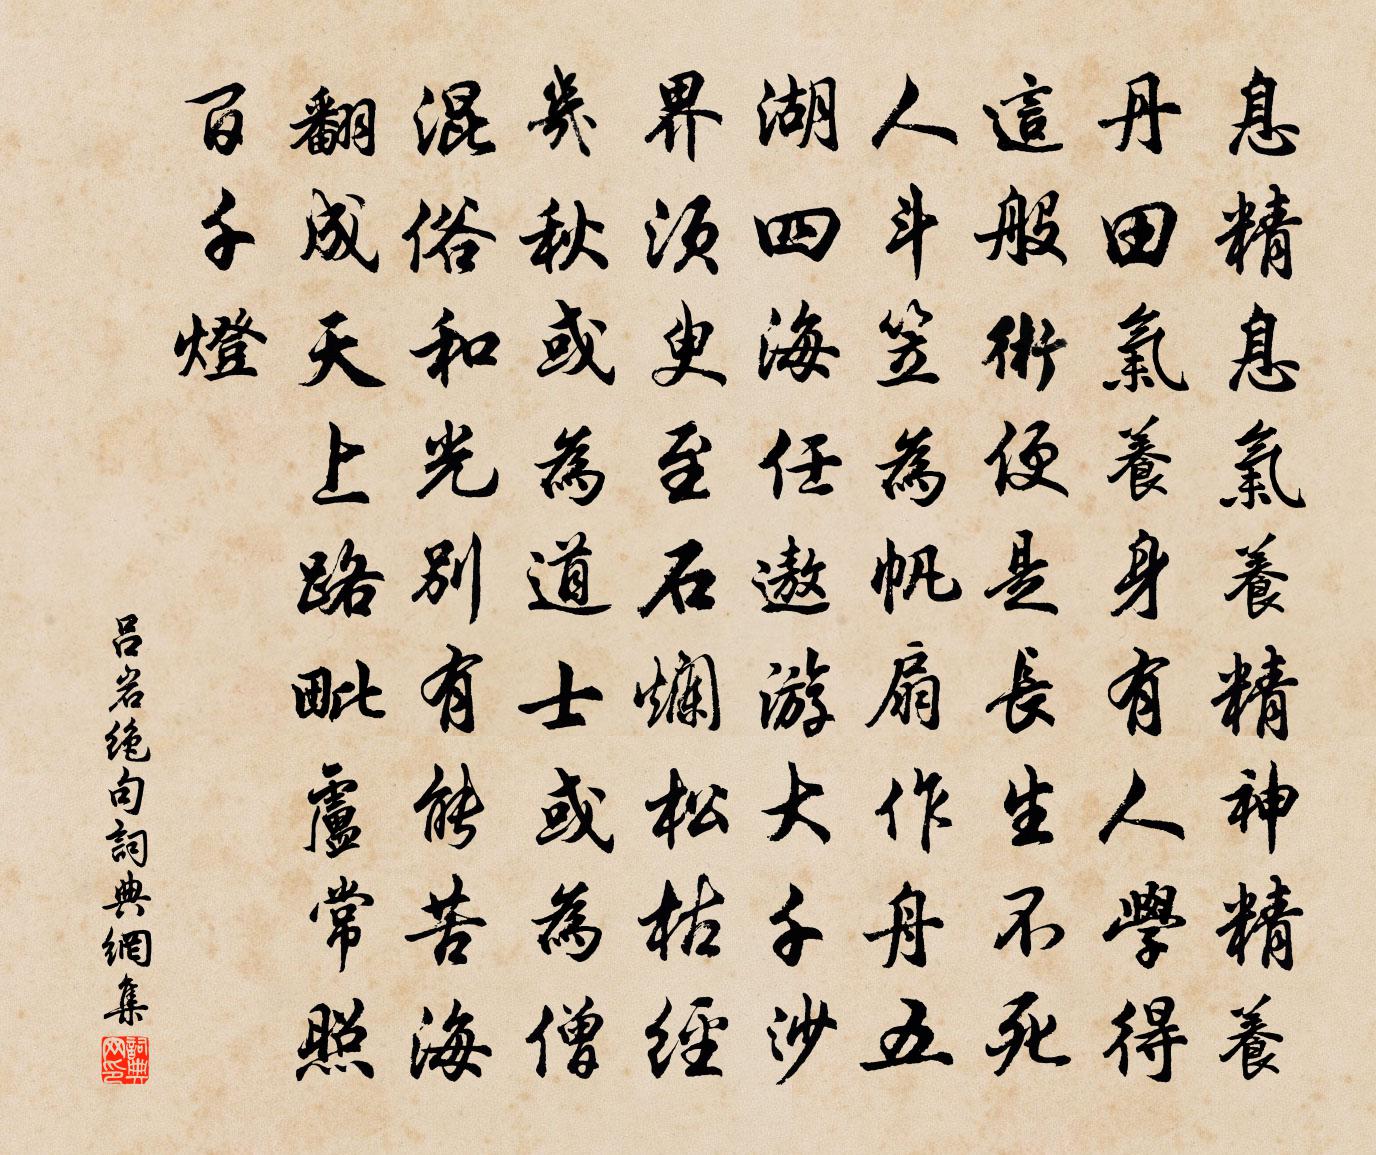 息精息氣養精神精養
丹田氣養身有人學得
這般術便是長生不死
人斗笠為帆扇作舟五
湖四海任遨游大千沙
界須臾至石爛松枯經
幾秋或為道士或為僧
混俗和光別有能苦海
翻成天上路毗盧常照
百千燈
呂岩絶句詞典網集
詞典网印